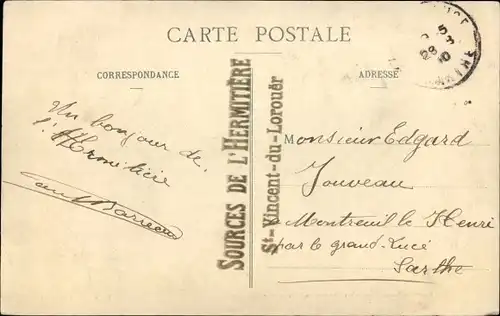 CARTE POSTALE
CORRESPONDANCE
ADRESSE
Un bonjour de
l'Hermitière
Barreau
SOURCES DE L'HERMITIÈRE
St-Vincent-du-Lorouër
Monsieur Edgard
Jouveau
à Montreuil le Henri
par le grand-Lucé
Sarthe